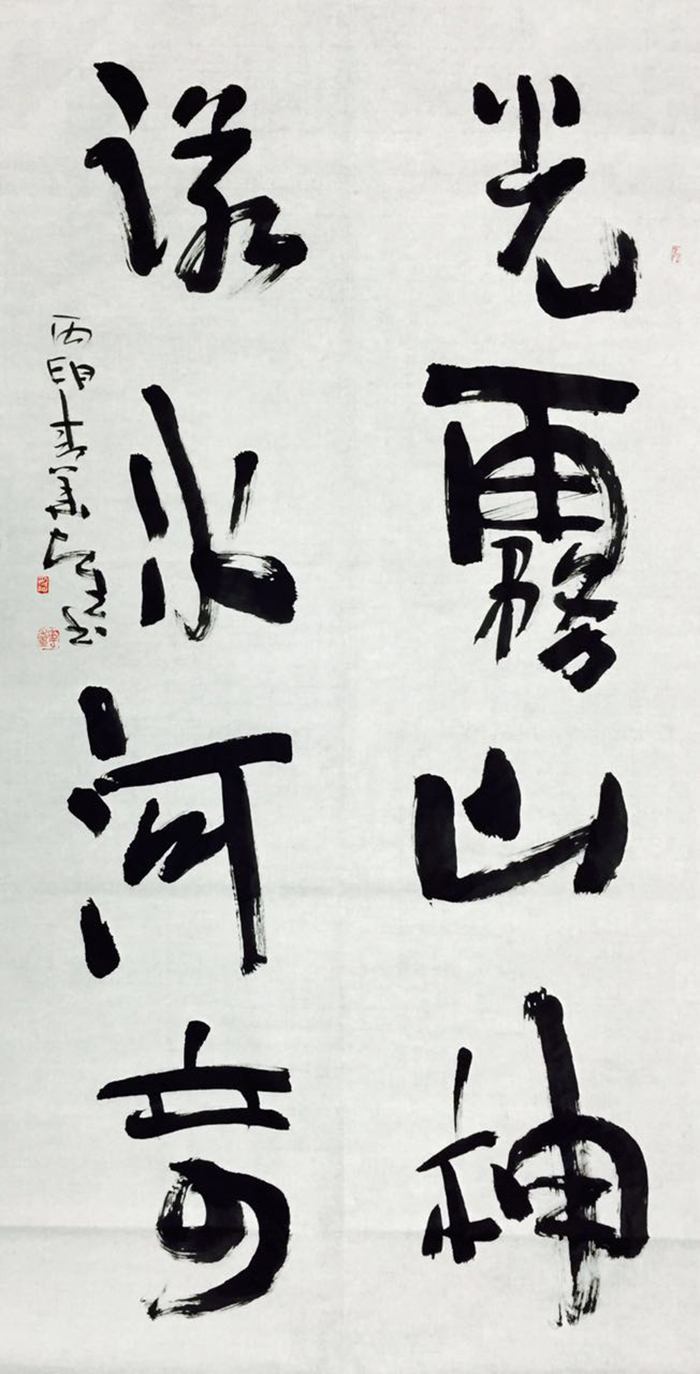 光雾山神
诺水河奇
丙申